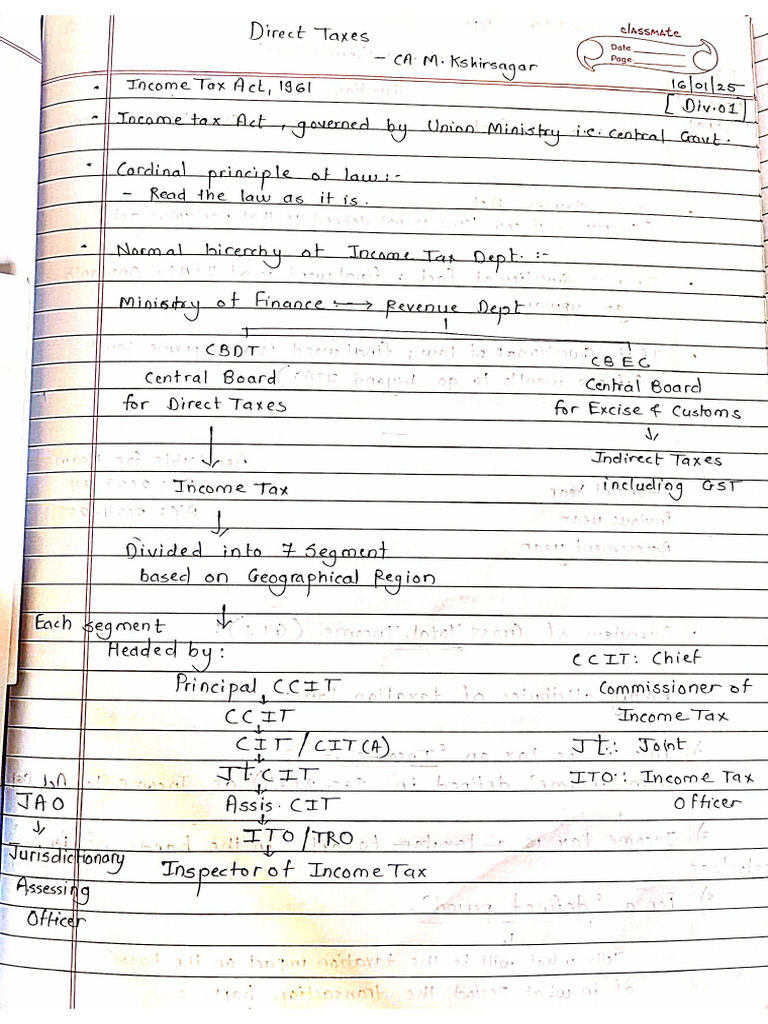 Direct Taxes
- CA. M. Kshirsagar
classmate
Date
Page
16/01/25
[Div.01]
• Income Tax Act, 1961
• Income tax Act, governed by Union Ministry i.e. Central Govt.
• Cardinal principle of law:-
- Read the law as it is.
• Normal hirerchy of Income Tax Dept. :-
Ministry of Finance :→ Revenue Dept
CBDT
CBEC
Central Board
Central Board
for Direct Taxes
for Excise & Customs
↓
↓
Indirect Taxes
Income Tax
including GST
↓
Divided into 7 segment
based on Geographical Region
↓
Each segment
Headed by :
CCIT: Chief
Principal CCIT
Commissioner of
↓
CCIT
Income Tax
↓
CIT / CIT(A)
Jt.: Joint
↓
Jt. CIT
ITO : Income Tax
↓
JAO
Assis. CIT
Officer
↓
↓
ITO/TRO
↓
Jurisdictionary
Inspector of Income Tax
Assessing
Officer